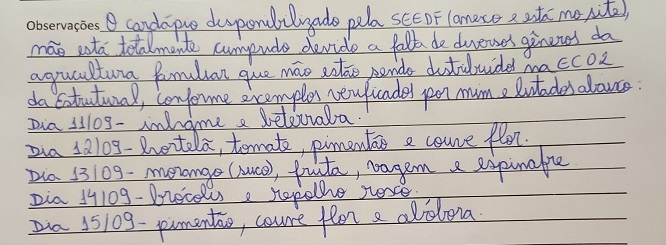 Observações O cardápio disponibilizado pela SEEDF (anexo e está no site),
não está totalmente cumprindo devido a falta de diversos gêneros da
agricultura familiar que não estão sendo distribuídos na EC02
da Estrutural, conforme exemplos verificados por mim e listados abaixo:
Dia 11/09 - inhame e beterraba.
Dia 12/09 - hortelã, tomate, pimentão e couve flor.
Dia 13/09 - morango (suco), fruta, vagem e espinafre.
Dia 14/09 - brócolis e repolho roxo.
Dia 15/09 - pimentão, couve flor e abóbora.